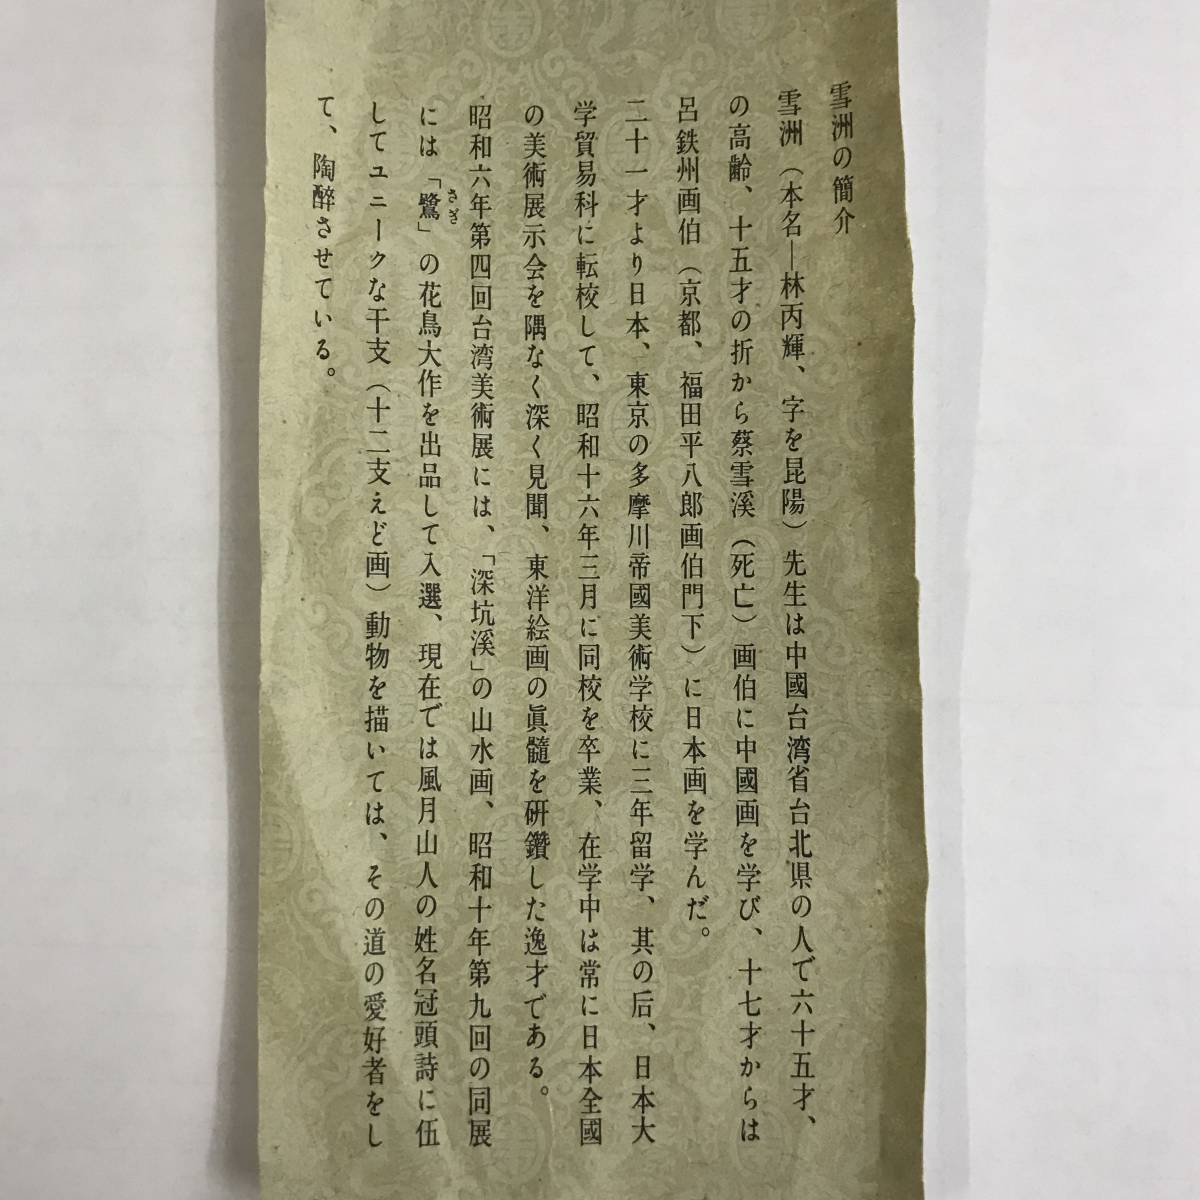 雪洲の簡介
雪洲（本名—林丙輝、字を昆陽）先生は中國台湾省台北県の人で六十五才、
の高齢、十五才の折から蔡雪溪（死亡）画伯に中國画を学び、十七才からは
呂鉄州画伯（京都、福田平八郎画伯門下）に日本画を学んだ。
二十一才より日本、東京の多摩川帝國美術学校に三年留学、其の后、日本大
学貿易科に転校して、昭和十六年三月に同校を卒業、在学中は常に日本全國
の美術展示会を隅なく深く見聞、東洋絵画の眞髄を研鑽した逸才である。
昭和六年第四回台湾美術展には、「深坑溪」の山水画、昭和十年第九回の同展
には「鷺さぎ」の花鳥大作を出品して入選、現在では風月山人の姓名冠頭詩に伍
してユニークな干支（十二支えど画）動物を描いては、その道の愛好者をし
て、陶醉させている。